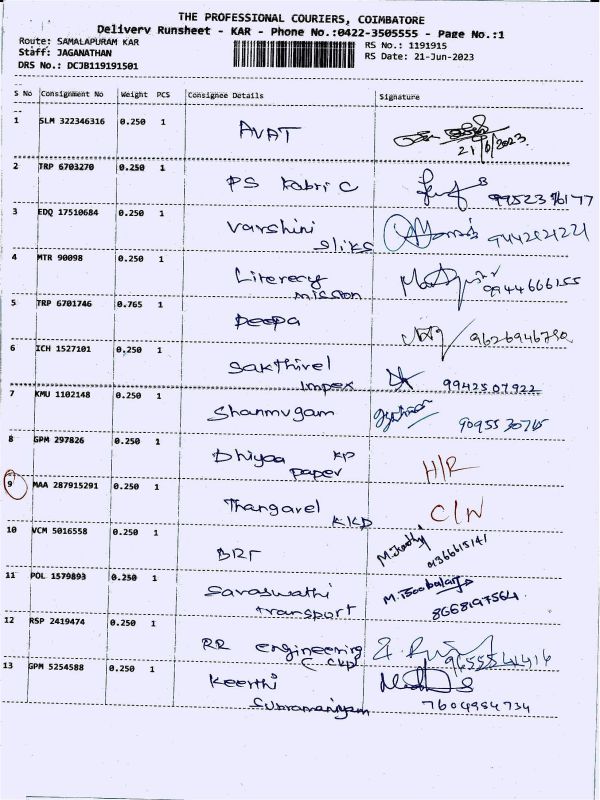 THE PROFESSIONAL COURIERS, COIMBATORE
Delivery Runsheet - KAR - Phone No.:0422-3505555 - Page No.:1
Route: SAMALAPURAM KAR
RS No.: 1191915
Staff: JAGANATHAN
RS Date: 21-Jun-2023
DRS No.: DCJB119191501
S No Consignment No Weight PCS Consignee Details Signature
1 SLM 322346316 0.250 1 AVAT
21/6/2023
2 TRP 6703270 0.250 1 PS Fabric
3 EDQ 17510684 0.250 1 Varshini
sliks
4 MTR 90098 0.250 1 Literecy
mission 9944666155
5 TRP 6701746 0.765 1 Deepa
6 ICH 1527101 0.250 1 Sakthivel
Impex 9942507922
7 KMU 1102148 0.250 1 Shanmugam
8 GPM 297826 0.250 1 Dhiyaa KP
paper H/R
9 MAA 287915291 0.250 1 Thangavel
KKP C/N
10 VCM 5016558 0.250 1
11 POL 1579893 0.250 1 Saraswathi
transport 8668197564
12 RSP 2419474 0.250 1 RR engineering
13 GPM 5254588 0.250 1 Keerthi
Subramaniyam 7604984734